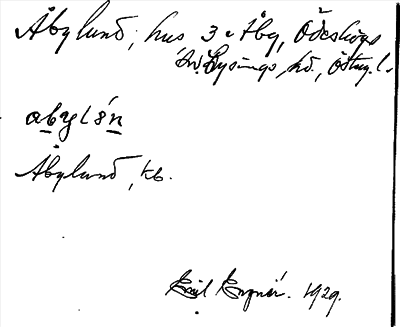 Åbylund, hus 3 i Åby, Ödeshögs
sn. Lysings hd., Östug.l.
abylón
Åbylund, kb.
Emil Engnér. 1929.